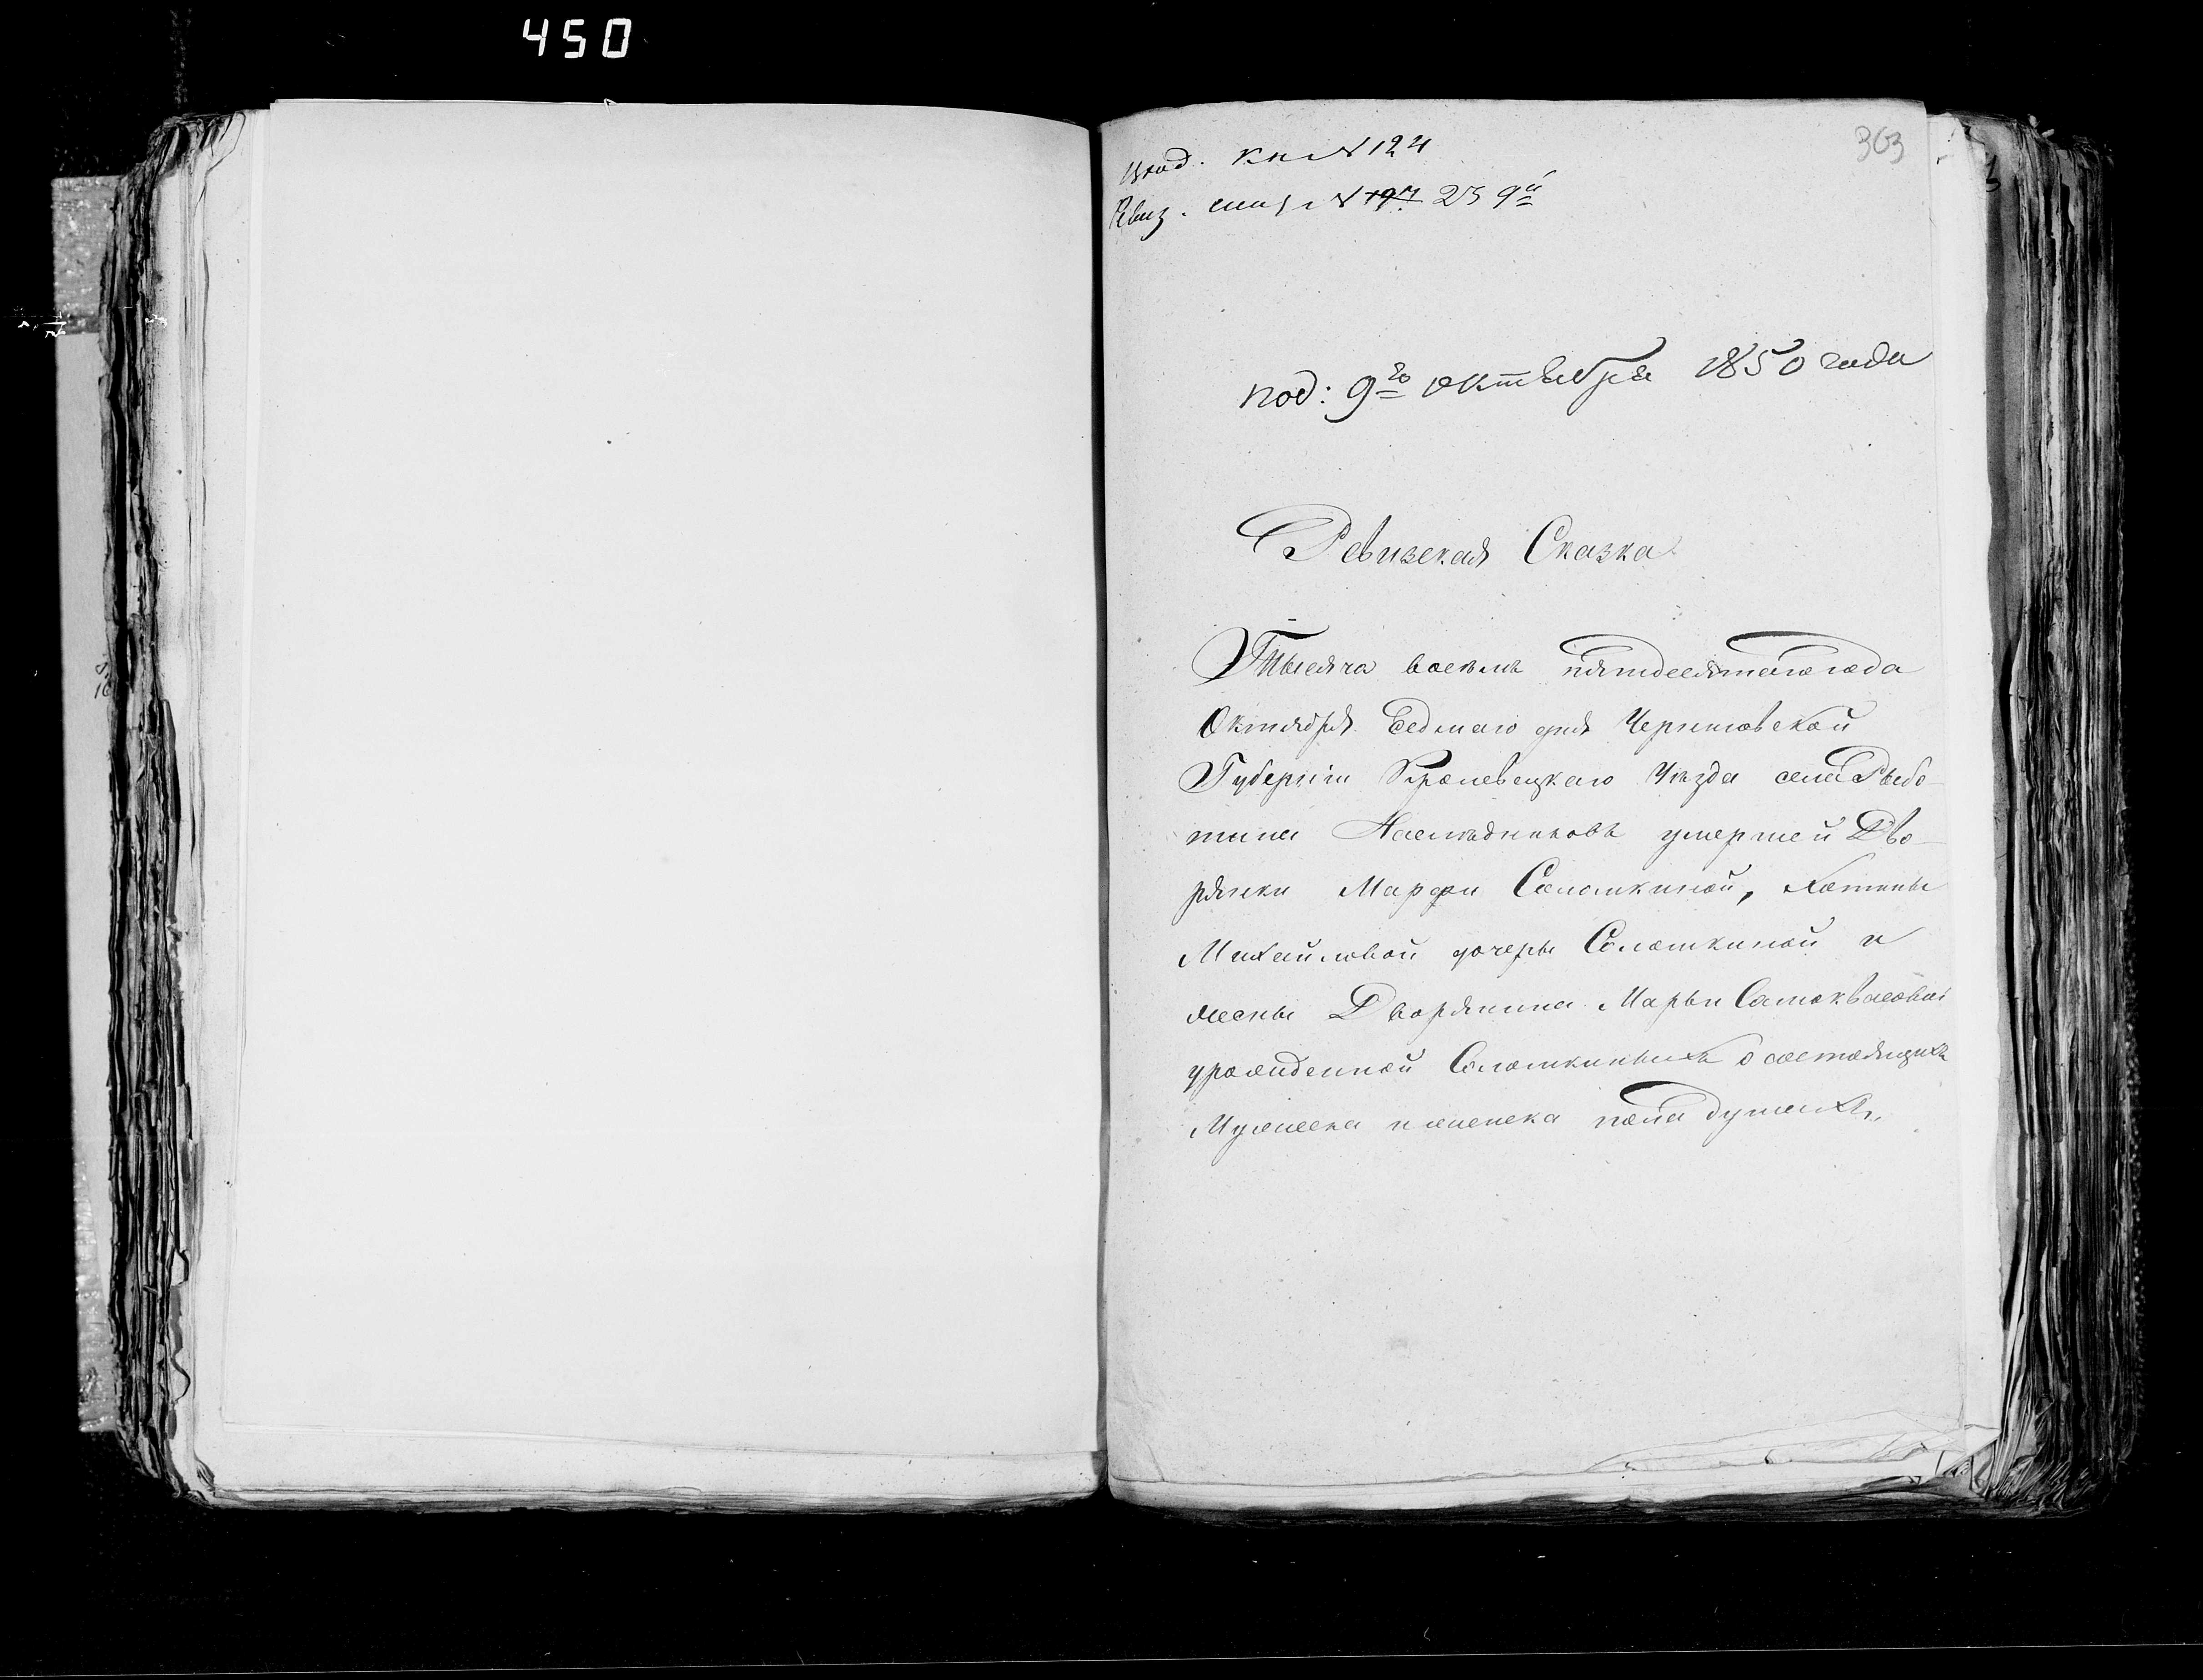 450
303
вход. Кн. № 124
Ревиз. сказ. № 197 23 9й
под: 9го октября 1850 года
Ревизская Сказка
Тысяча восемь пятдесятого года
Октября седмаго дня Черниговской
Губерніи Кролевецкаго Уезда села Рыбо-
тина Наследниковъ умершей Дво-
рянки Марфи Солошкиной,
Михайловой дочеры Солошкиной и
жены Дворянина Марьи Самоквасовой
урожденной Солошкиныхъ о состоящихъ
Мужеска и женска пола душахъ,,